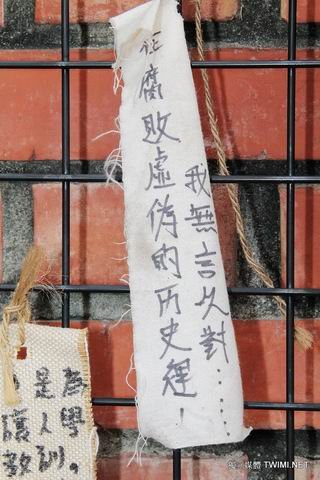 在腐敗虛偽的历史裡！
我無言以對……
是為
讓人學
教訓。
TWIMI.NET